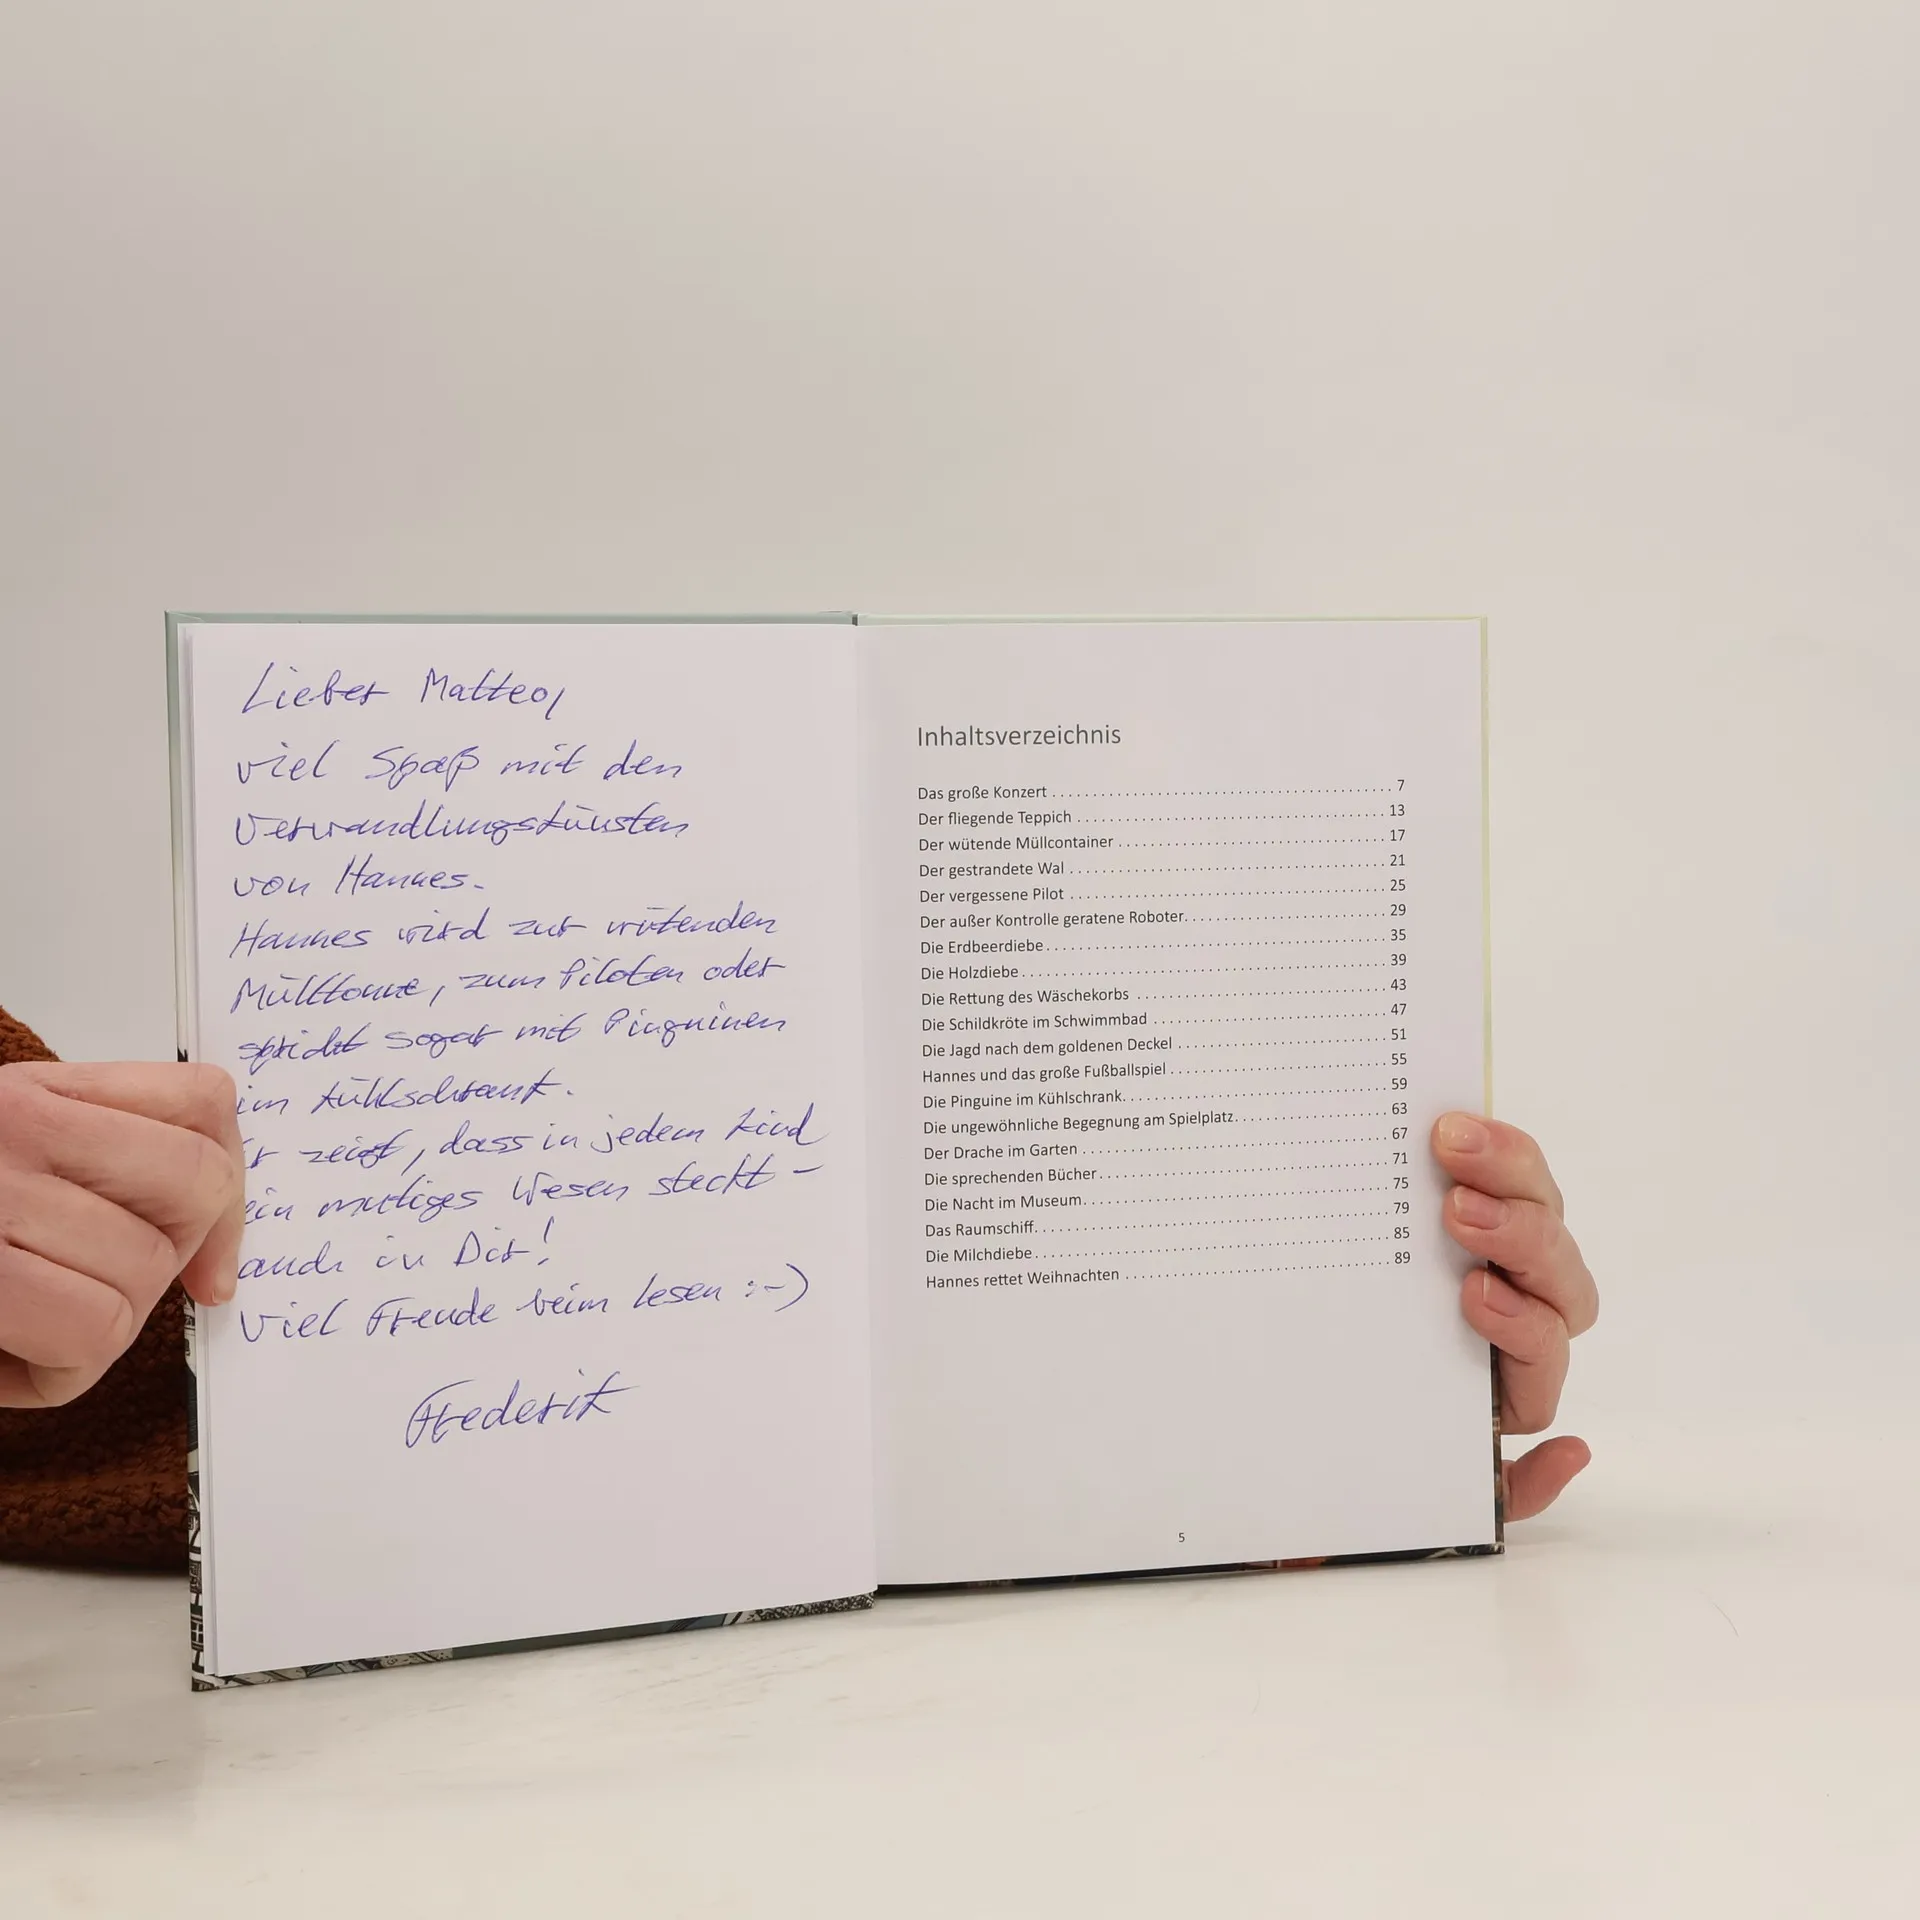 Lieber Matteo,
viel Spaß mit den
Verwandlungskünsten
von Hannes.
Hannes wird zur wütenden
Mülltonne, zum Piloten oder
spricht sogar mit Pinguinen
im Kühlschrank.
Er zeigt, dass in jedem Kind
ein mutiges Wesen steckt –
auch in Dir!
Viel Freude beim Lesen :-)
Frederik
Inhaltsverzeichnis
Das große Konzert . . . . . . . . . . 7
Der fliegende Teppich . . . . . . . . . . 13
Der wütende Müllcontainer . . . . . . . . . . 17
Der gestrandete Wal . . . . . . . . . . 21
Der vergessene Pilot . . . . . . . . . . 25
Der außer Kontrolle geratene Roboter . . . . . . . . . . 29
Die Erdbeerdiebe . . . . . . . . . . 35
Die Holzdiebe . . . . . . . . . . 39
Die Rettung des Wäschekorbs . . . . . . . . . . 43
Die Schildkröte im Schwimmbad . . . . . . . . . . 47
Die Jagd nach dem goldenen Deckel . . . . . . . . . . 51
Hannes und das große Fußballspiel . . . . . . . . . . 55
Die Pinguine im Kühlschrank . . . . . . . . . . 59
Die ungewöhnliche Begegnung am Spielplatz . . . . . . . . . . 63
Der Drache im Garten . . . . . . . . . . 67
Die sprechenden Bücher . . . . . . . . . . 71
Die Nacht im Museum . . . . . . . . . . 75
Das Raumschiff . . . . . . . . . . 79
Die Milchdiebe . . . . . . . . . . 85
Hannes rettet Weihnachten . . . . . . . . . . 89
5